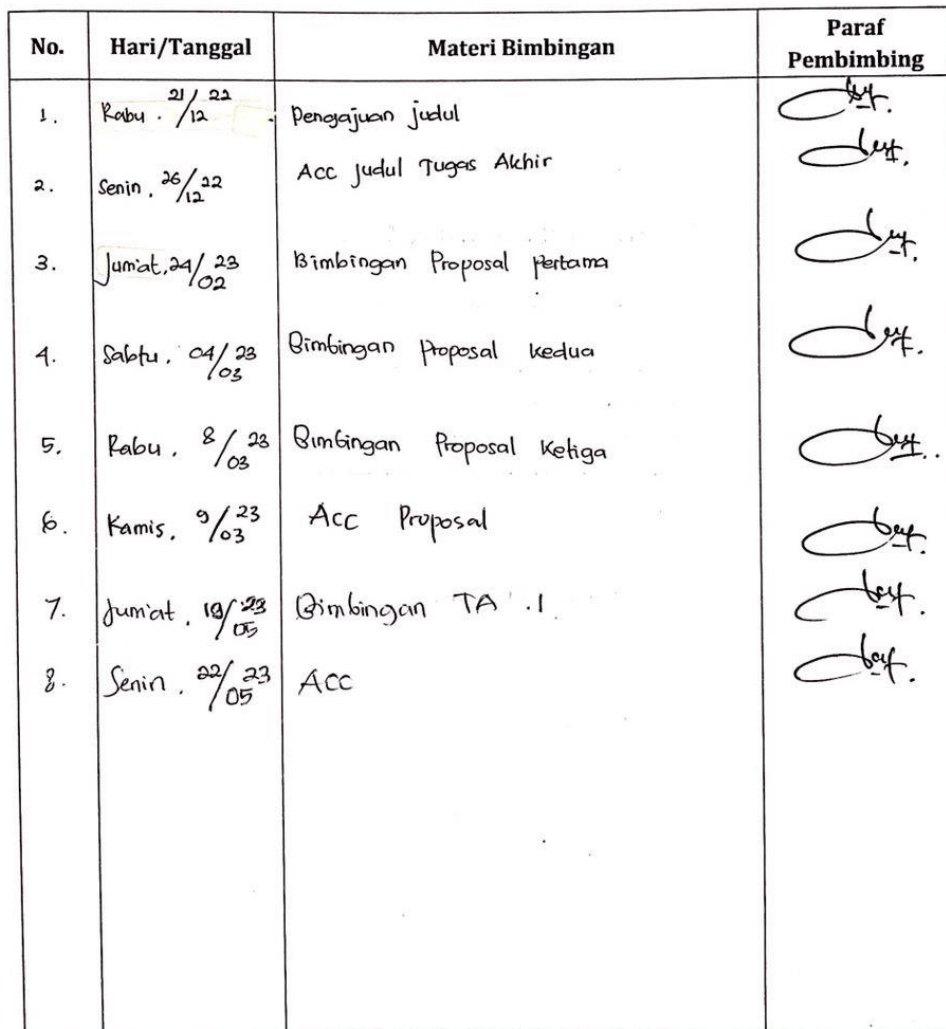 No. Hari/Tanggal Materi Bimbingan Paraf Pembimbing
1. Rabu. 21/12 22 Pengajuan judul
2. Senin, 26/12 22 Acc Judul Tugas Akhir
3. Jum'at, 24/02 23 Bimbingan Proposal Pertama
4. Sabtu, 04/03 23 Bimbingan Proposal Kedua
5. Rabu, 8/03 23 Bimbingan Proposal Ketiga
6. Kamis, 9/03 23 Acc Proposal
7. Jum'at, 19/05 23 Bimbingan TA .1
8. Senin, 22/05 23 Acc